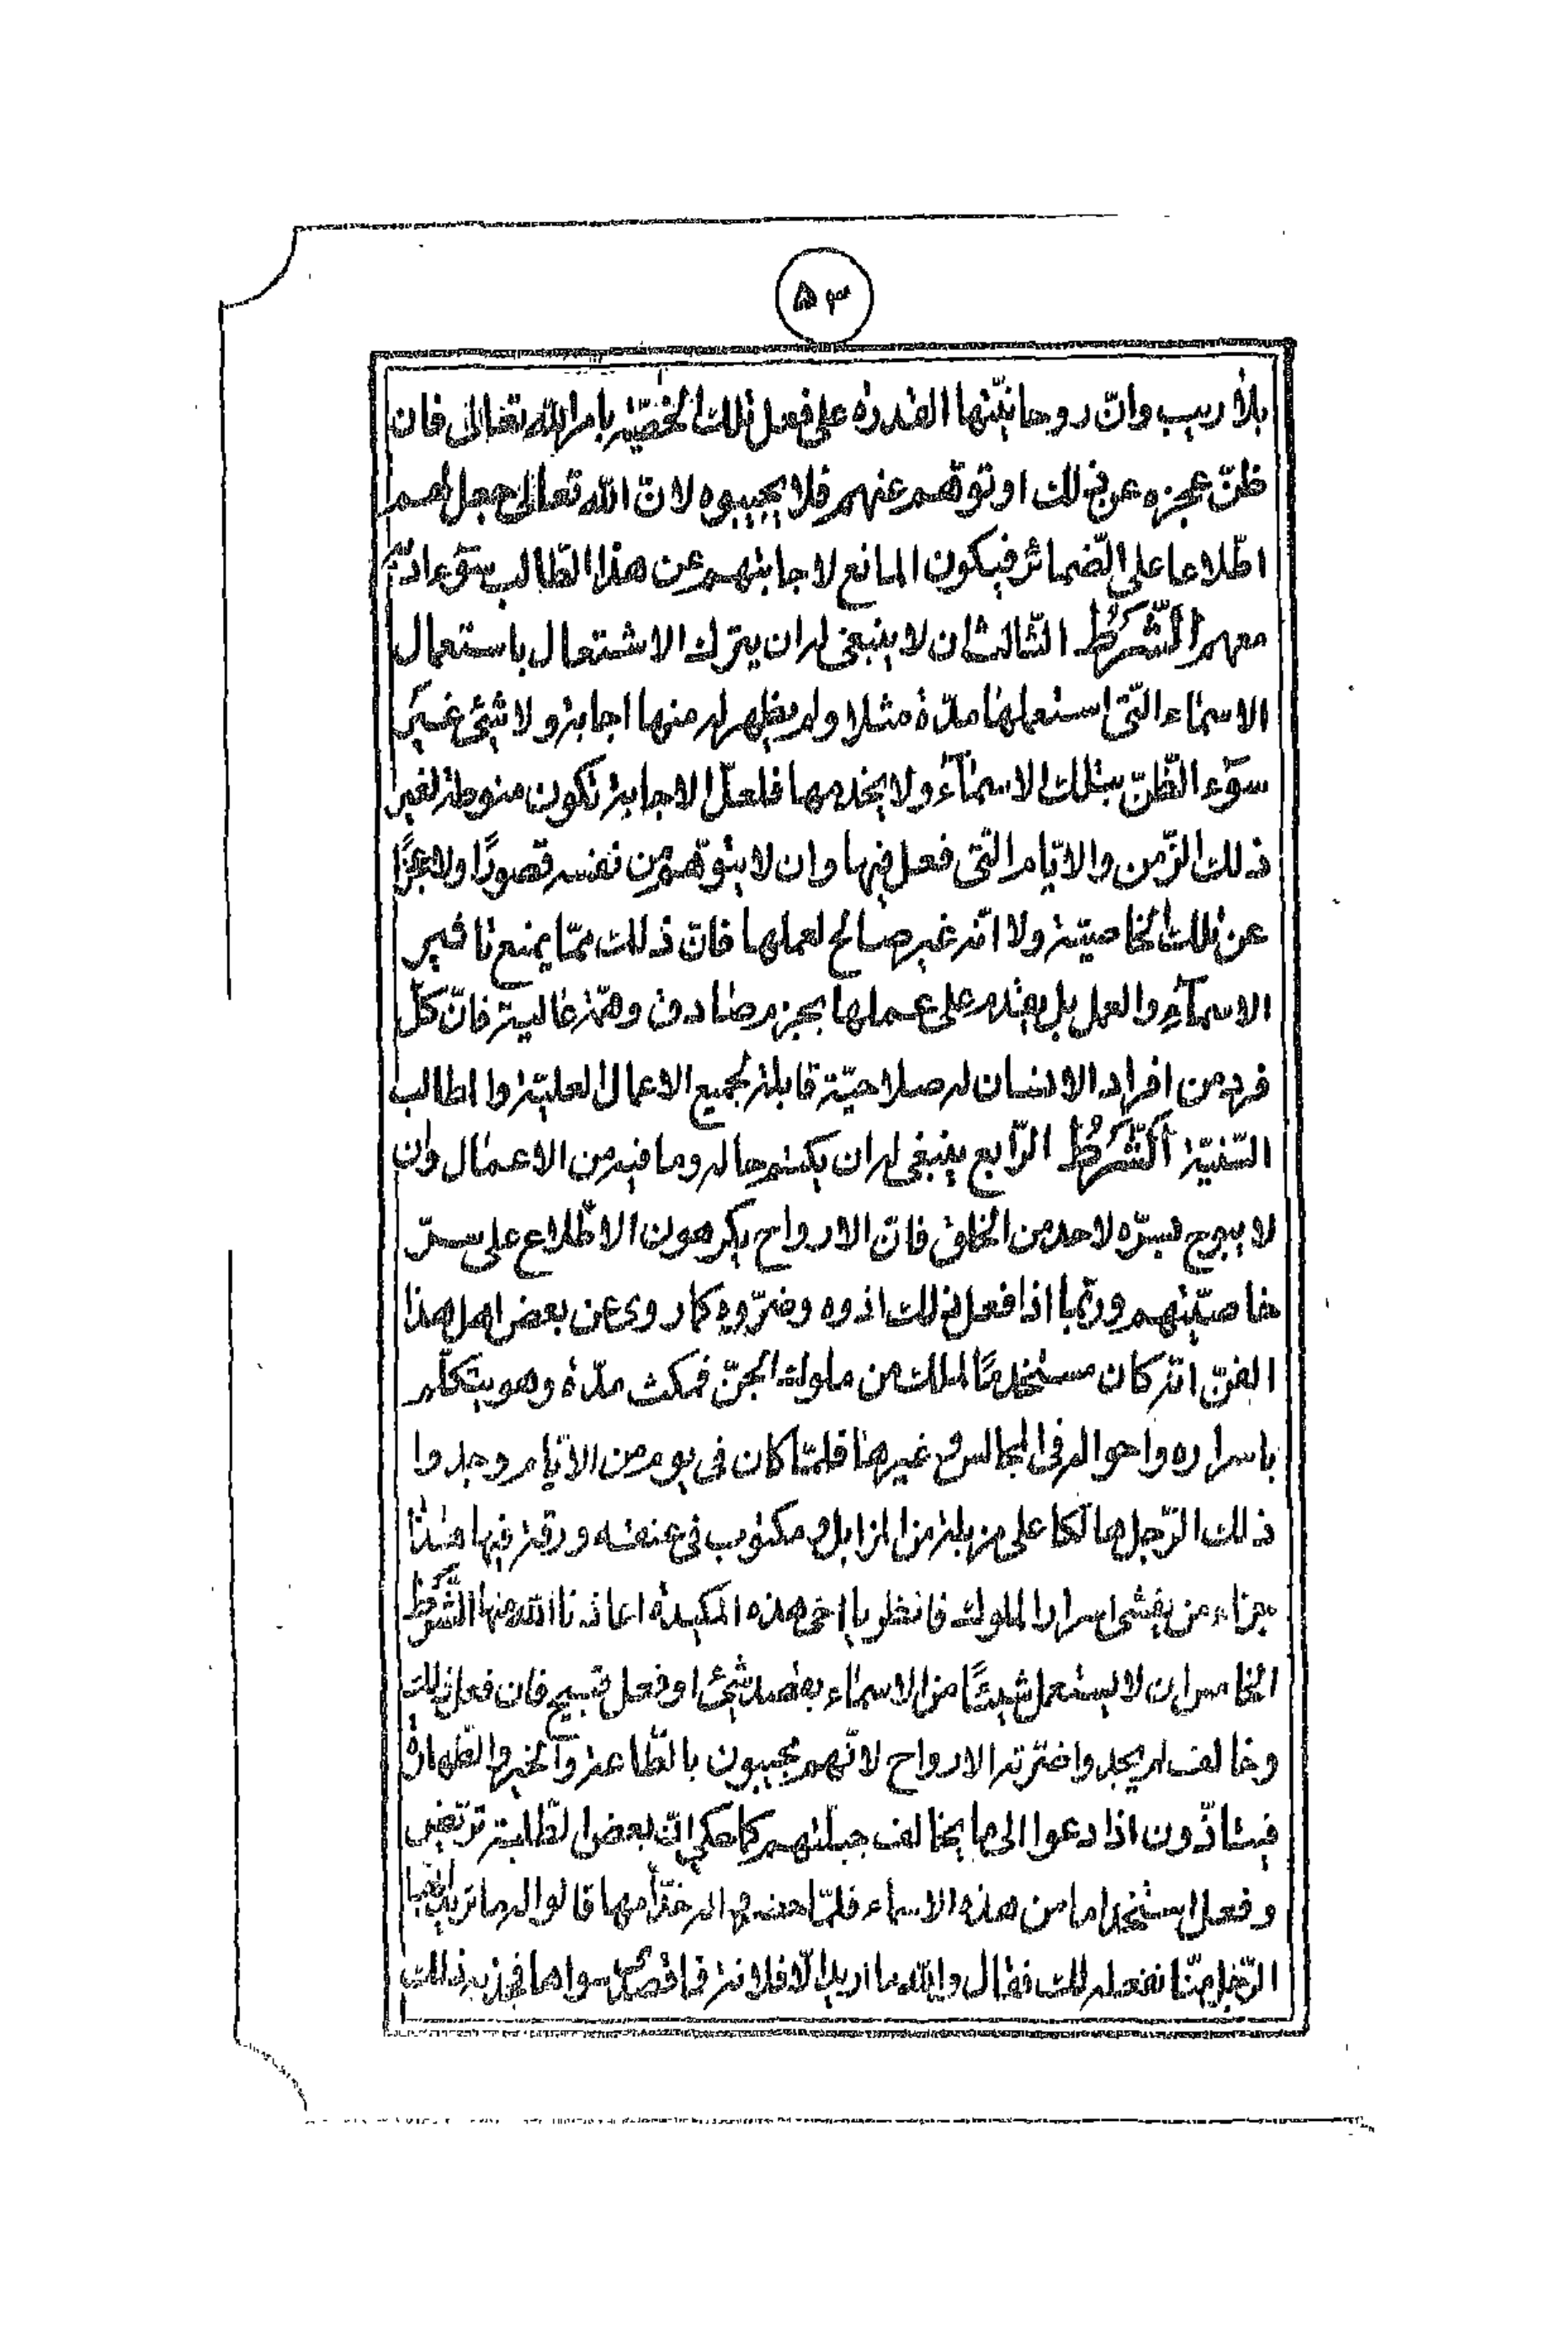 ۵۳
بلا ريب وانّ روحانيّتها القدرة على فعل تلك الخصيّة بامر الله تعالى فان
ظنّ عجزه عن ذلك او توهّم عنهم فلا يجيبوه لانّ الله تعالى جعل لهم
اطّلاعا على الضّمائر فيكون المانع لاجابتهم عن هذا الطّالب سوٓء ادبه
معهم الشّرط الثّالث ان لا ينبغى له ان يترك الاشتعال باستعمال
الاسمآء الّتى استعملها مدّة مثلا ولم يظهر له منها اجابة ولا شئ غير
سوٓء الظّنّ بتلك الاسمآء ولا يخدمها فلعلّ الاجابة تكون منوطة لغير
ذلك الزّمن والايّام الّتى فعل فيها وان لا يتوهّم من نفسه قصورًا ولا عجزًا
عن تلك الخاصيّة ولا انّه غير صالح لعملها فانّ ذلك ممّا يمنع تاثير
الاسمآء والعمل بل يقدم على عملها بجزم صادق وهمّة عالية فانّ كلّ
فرد من افراد الانسان له صلاحيّة قابلة لجميع الاعمال العليّة والمطالب
السّنيّة الشّرط الرّابع ينبغى له ان يكتم حاله وما فيه من الاعمال وان
لا يبوح بسرّه لاحد من الخلق فانّ الارواح يكرهون الاطّلاع على سرّ
خاصيّتهم وربّما اذا فعل ذلك اذوه وضرّوه كما روى عن بعض اهل هذا
الفنّ انّه كان مستخدمًا لملك من ملوك الجنّ فمكث مدّة وهو يتكلّم
باسراره واحواله فى المجالس وغيرها فلمّا كان فى يوم من الايّام وجدوا
ذلك الرّجل هالكا على مزبلة من المزابل ومكتوب فى عنقه ورقة فيها هذا
جزاء من يفشى اسرار الملوك فانظر يا اخى هذه المكيدة اعاذنا الله منها الشّرط
الخامس ان لا يستعمل شيئًا من الاسمآء بقصد شئ او فعل قبيح فان فعل ذلك
وخالف لم يجد واضرّته الارواح لانّهم يجيبون بالطّاعة والخير والطّهارة
فيتاذّون اذا دعوا الى ما يخالف جبلّتهم كما حكى انّ بعض الطّلبة تريّض
وفعل استخداما من هذه الاسمآء فلمّا حضر اليه خدّامها قالوا له ما تريد ايّها
الرّجل منّا نفعله لك فقال والله ما اريد الّا فلانة فافصح سواها فى زبد ذلك